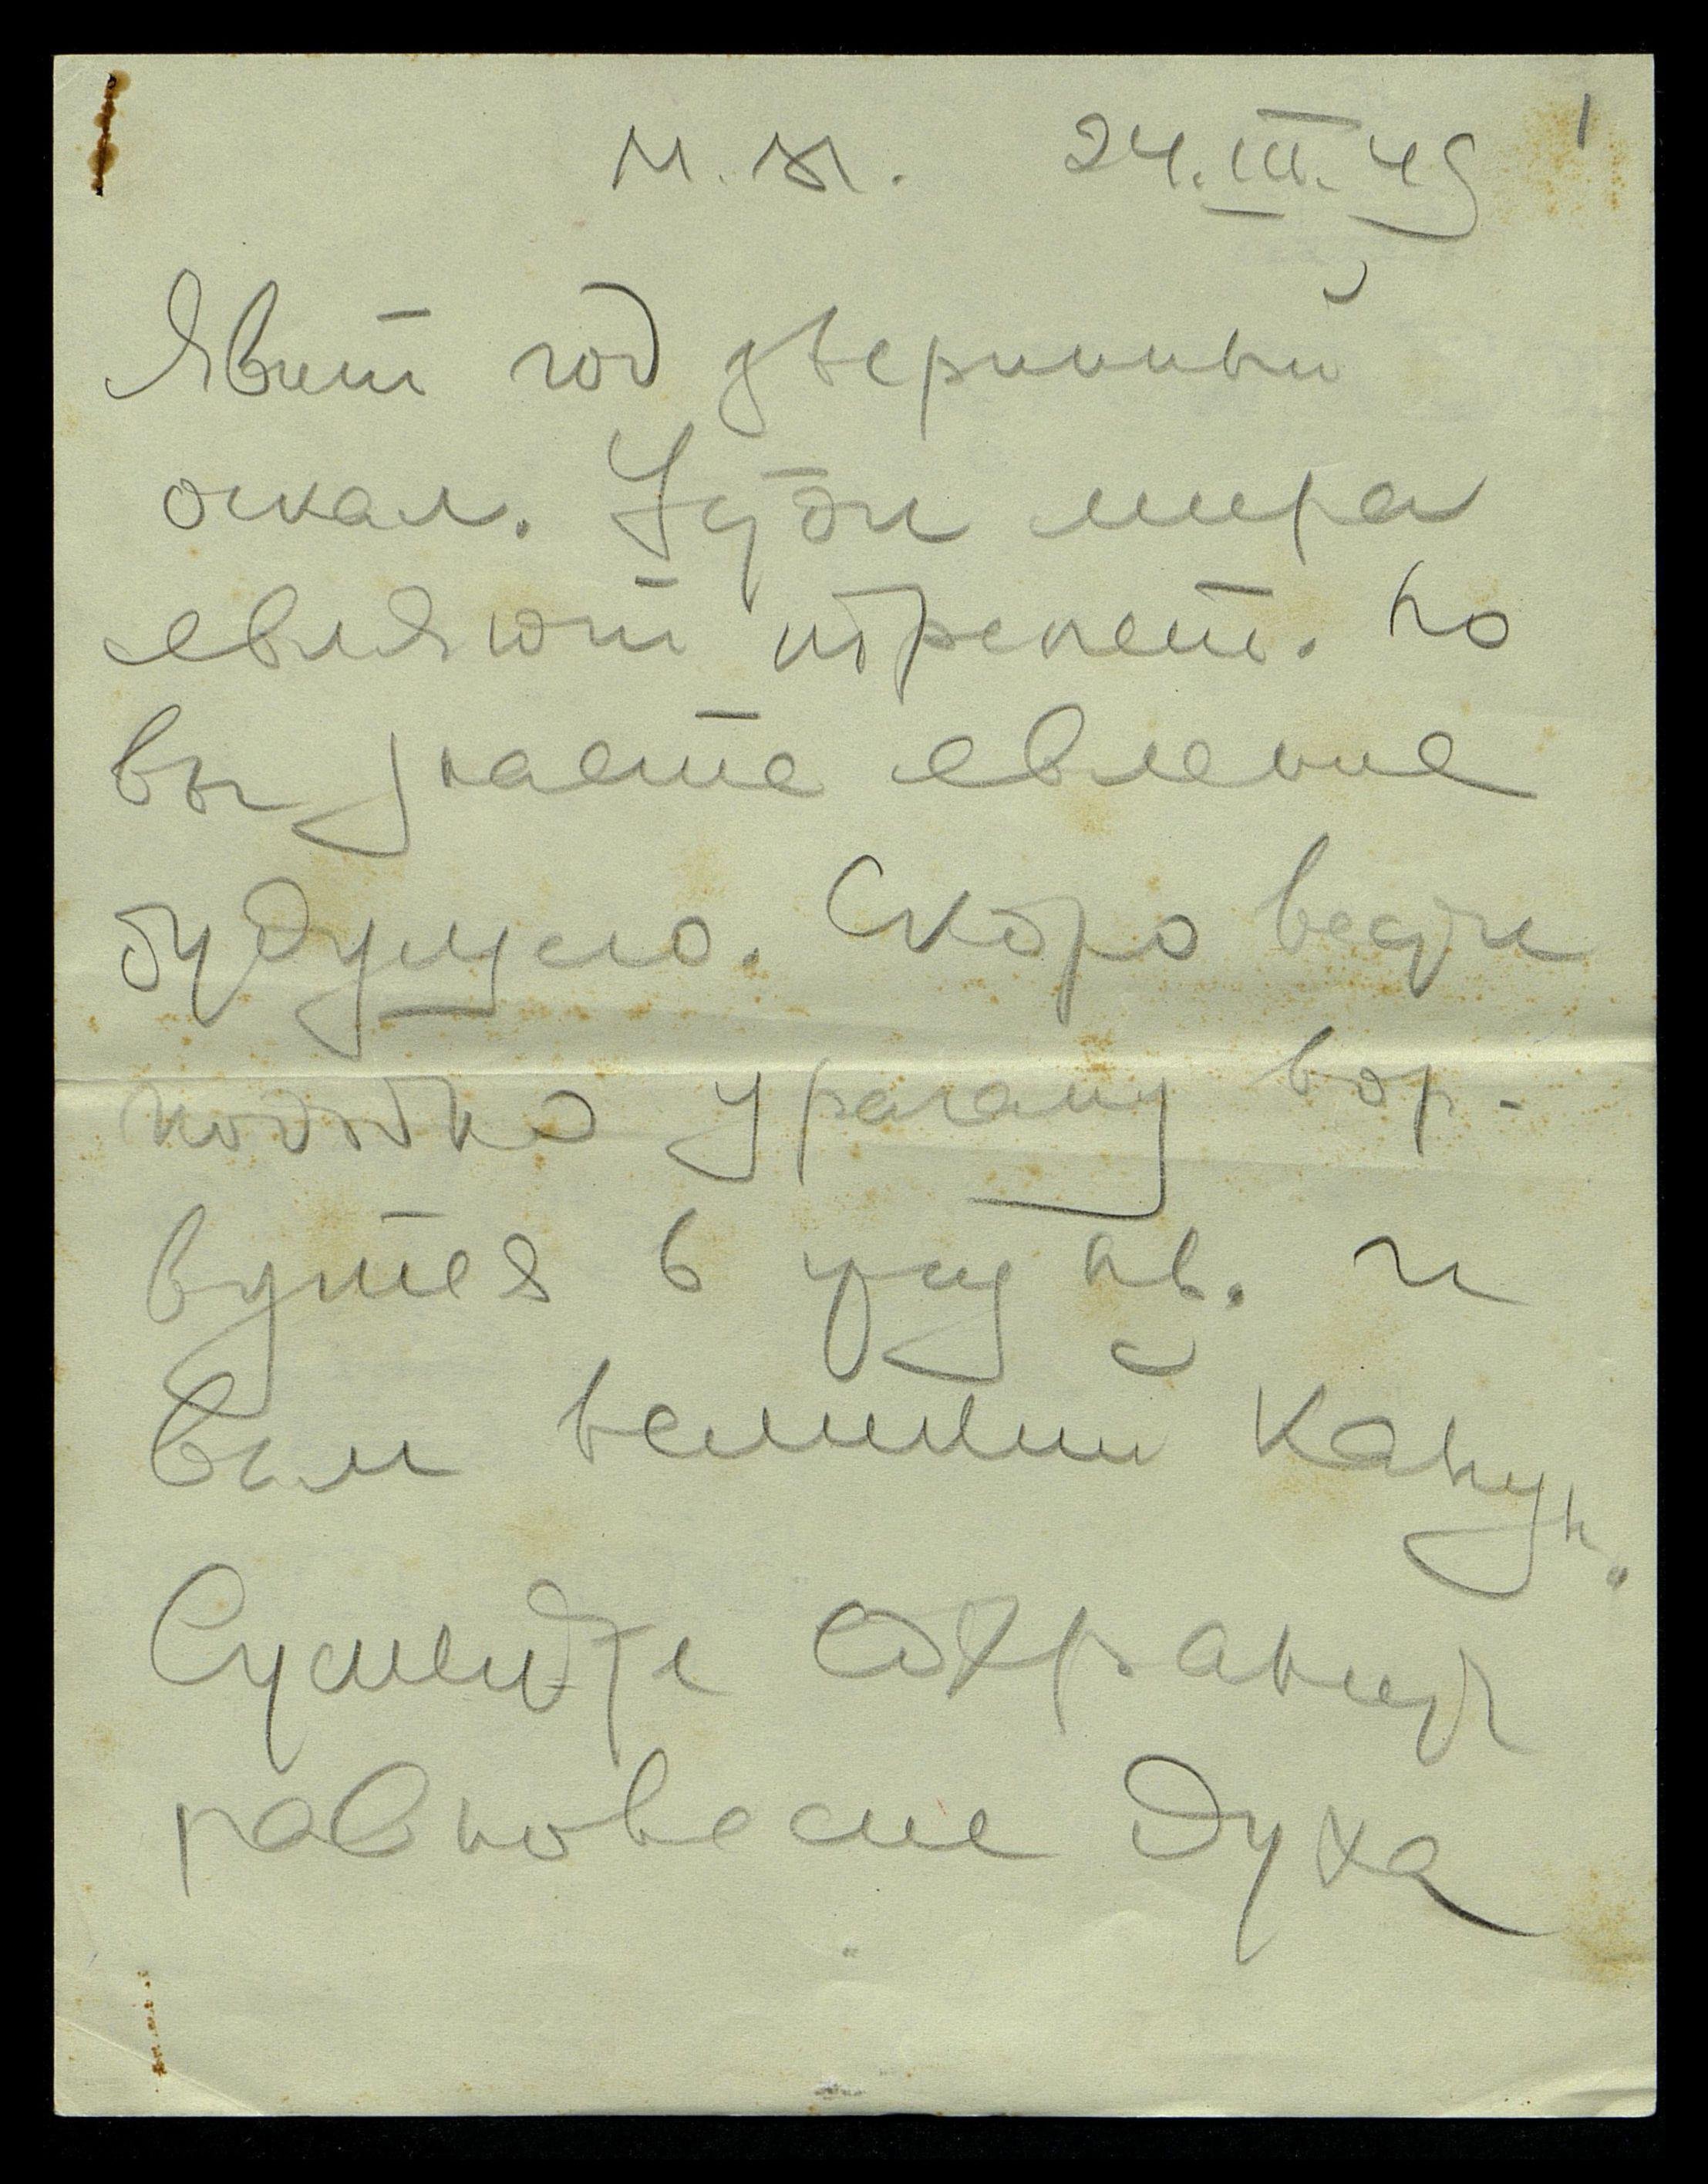 М. М. 24.III.49 1
Явит год звериный
оскал. Судьи мира
являют трепет. Но
вы знаете явление
будущего. Скоро вести
подобно урагану вор-
вутся в и
Вам великий Канун.
Сумейте сохранить
равновесие духа